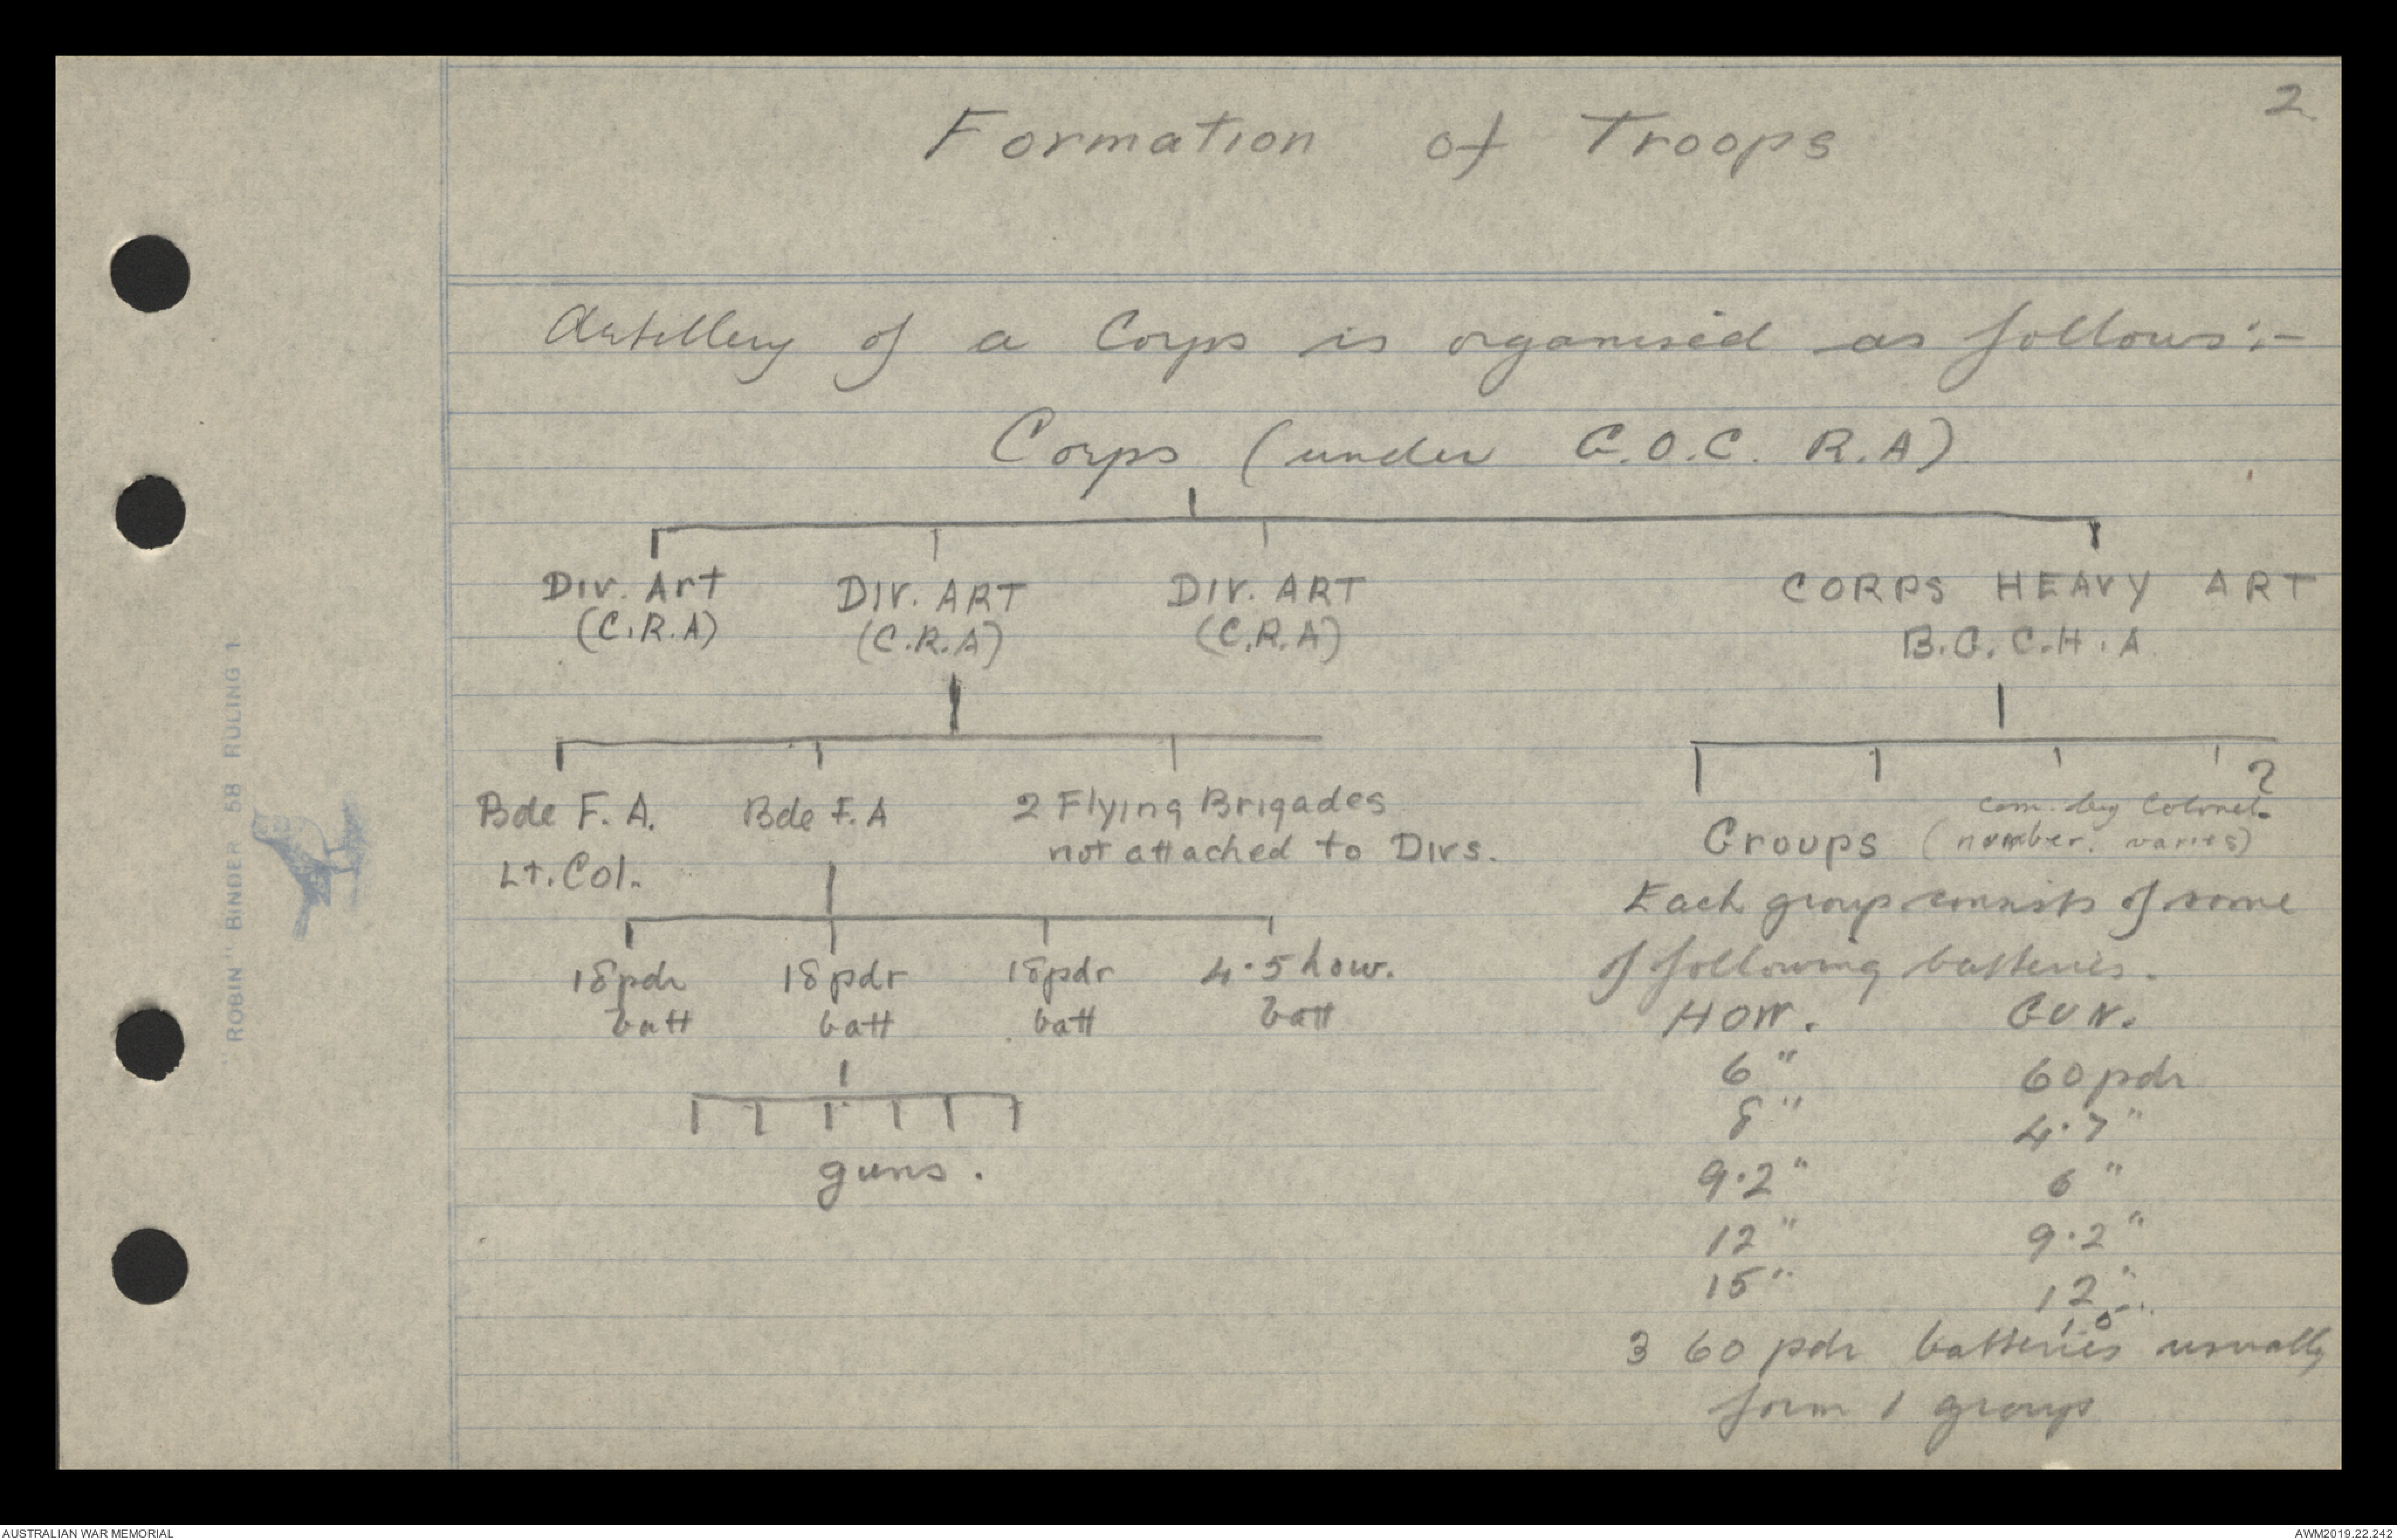 2
Formation of Troops
Artillery of a Corps is organised as follows:-
Corps (under G.O.C. R.A)
Div. Art DIV. ART DIV. ART CORPS HEAVY ART
(C.R.A) (C.R.A) (C.R.A) B.G. C.H.A
?
Bde F. A. Bde F.A 2 Flying Brigades com. by Colonel.
not attached to Divs. Groups (number. varies)
Lt. Col.
Each group consists of some
of following batteries.
18pdr 18pdr 18pdr 4.5 how.
batt batt batt batt
HOW. GUN.
6" 60 pdr
8" 4.7"
guns.
9.2" 6"
12" 9.2"
15" 12"
15
3 60 pdr batteries usually
form 1 group
"ROBIN" BINDER 58 RULING 1
AUSTRALIAN WAR MEMORIAL AWM2019.22.242